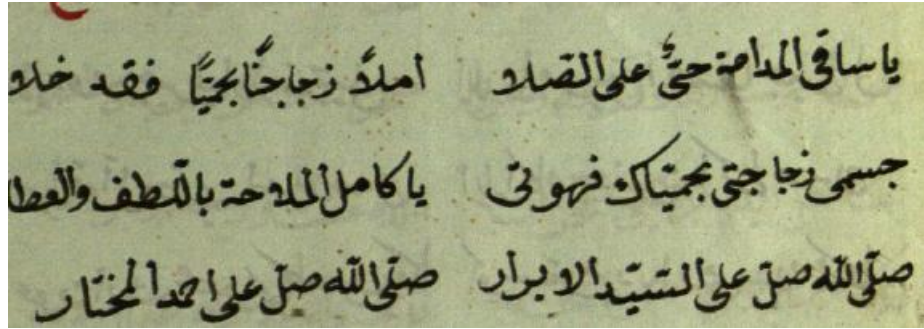 يا ساقي المدامة حتىّ على الصلا املأ زجاجنا بحميّا فقد خلا
جسمى زجاجتى بحميتاك فهوتى يا كامل الملاحة باللطف والعطا
صلّى الله صلّ على السّيّد الابرار صلّى الله صلّ على احمد المختار